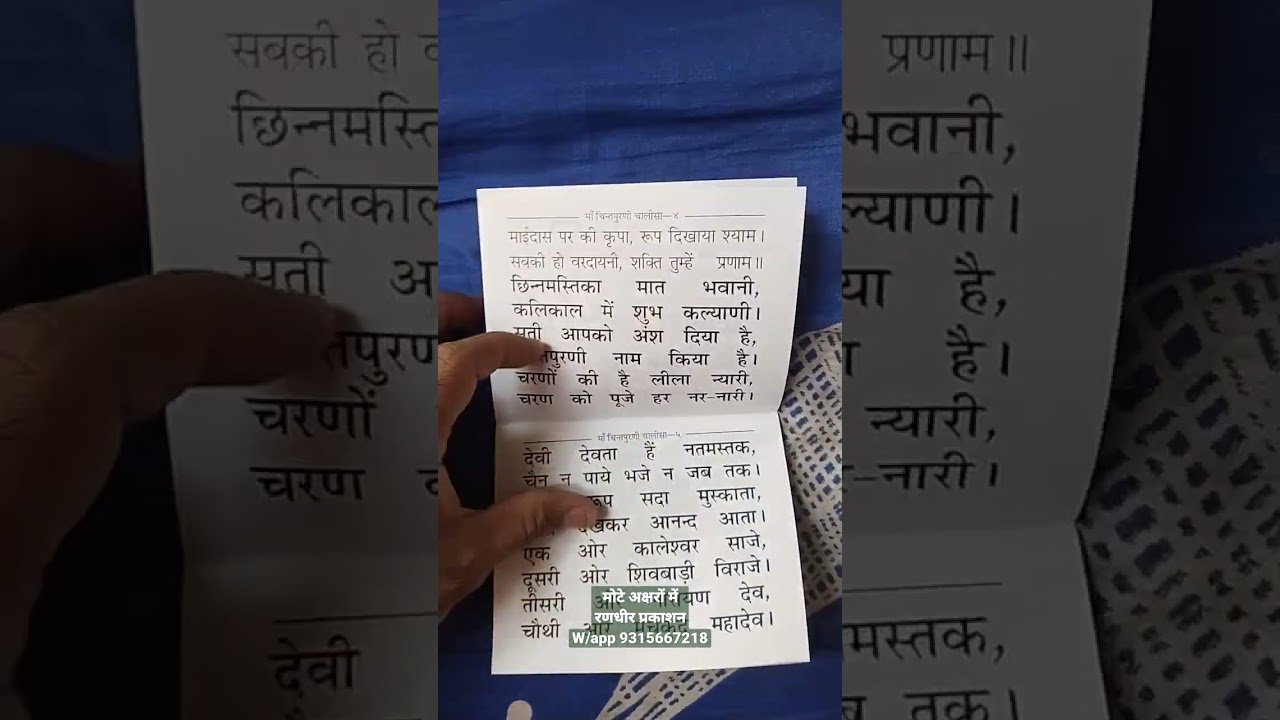 माँ चिन्तपुरणी चालीसा—४
माईदास पर की कृपा, रूप दिखाया श्याम।
सबकी हो वरदायनी, शक्ति तुम्हें प्रणाम॥
छिन्नमस्तिका मात भवानी,
कलिकाल में शुभ कल्याणी।
सती आपको अंश दिया है,
नाम किया है।
चरणों की है लीला न्यारी,
चरण को पूजे हर नर-नारी।
माँ चिन्तपुरणी चालीसा—५
देवी देवता हैं नतमस्तक,
चैन न पाये भजे न जब तक।
रूप सदा मुस्काता,
देखकर आनन्द आता।
एक ओर कालेश्वर साजे,
दूसरी ओर शिवबाड़ी विराजे।
तीसरी ओर नारायण देव,
चौथी ओर महादेव।
मोटे अक्षरों में
रणधीर प्रकाशन
W/app 9315667218